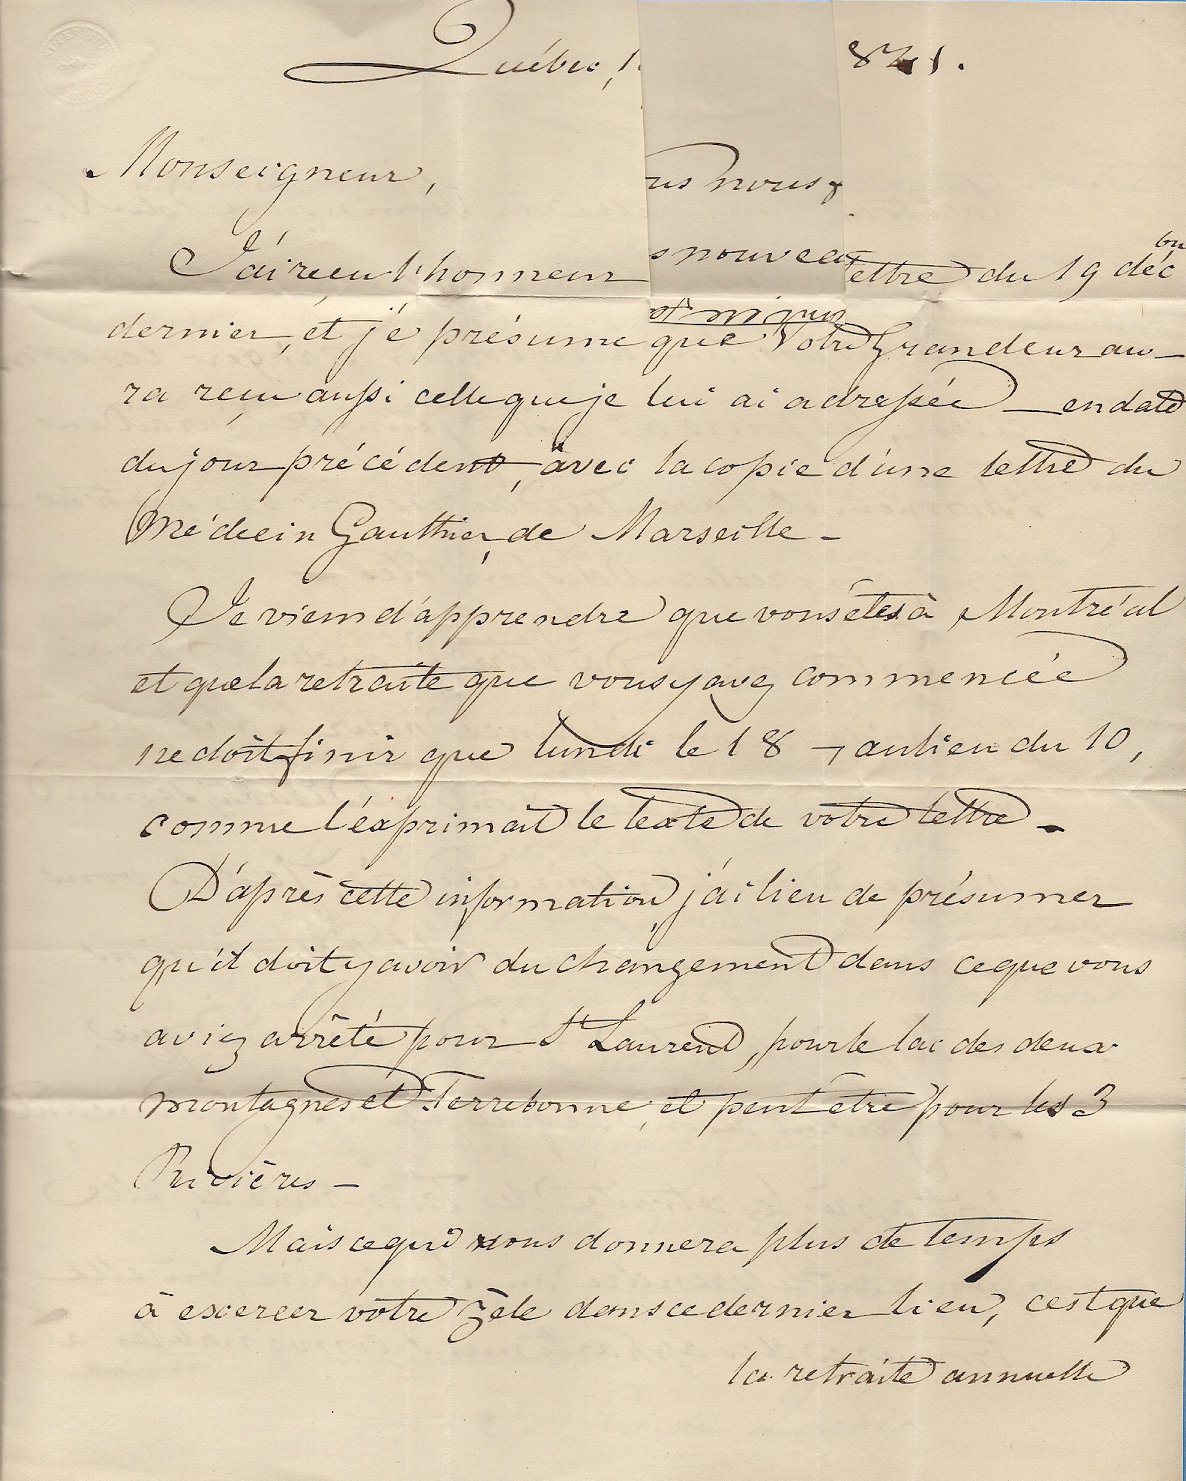 Québec, 1 841.
Monseigneur,
us nous
J'ai reçu l'honneur s nouvea ettre du 19 déc
dernier, et j'e présume que Votre Grandeur au-
ra reçu aussi celle que je lui ai adressée en date
du jour précédent, avec la copie d'une lettre du
Médecin Gauthier, de Marseille -
Je viens d'apprendre que vous êtes à Montréal
et que la retraite que vous y avez commencée
ne doit finir que lundi le 18 -, au lieu du 10,
comme l'éxprimait le texte de votre lettre -
D'après cette information, j'ai lieu de présumer
qu'il doit y avoir du changement dans ce que vous
aviez arrêté pour St Laurent, pour le lac des deux
montagnes et Terrebonne, et peut être pour les 3
Rivières -
Mais ce qui vous donnera plus de temps
à exercer votre zèle dans ce dernier lieu, c'est que
la retraite annuelle